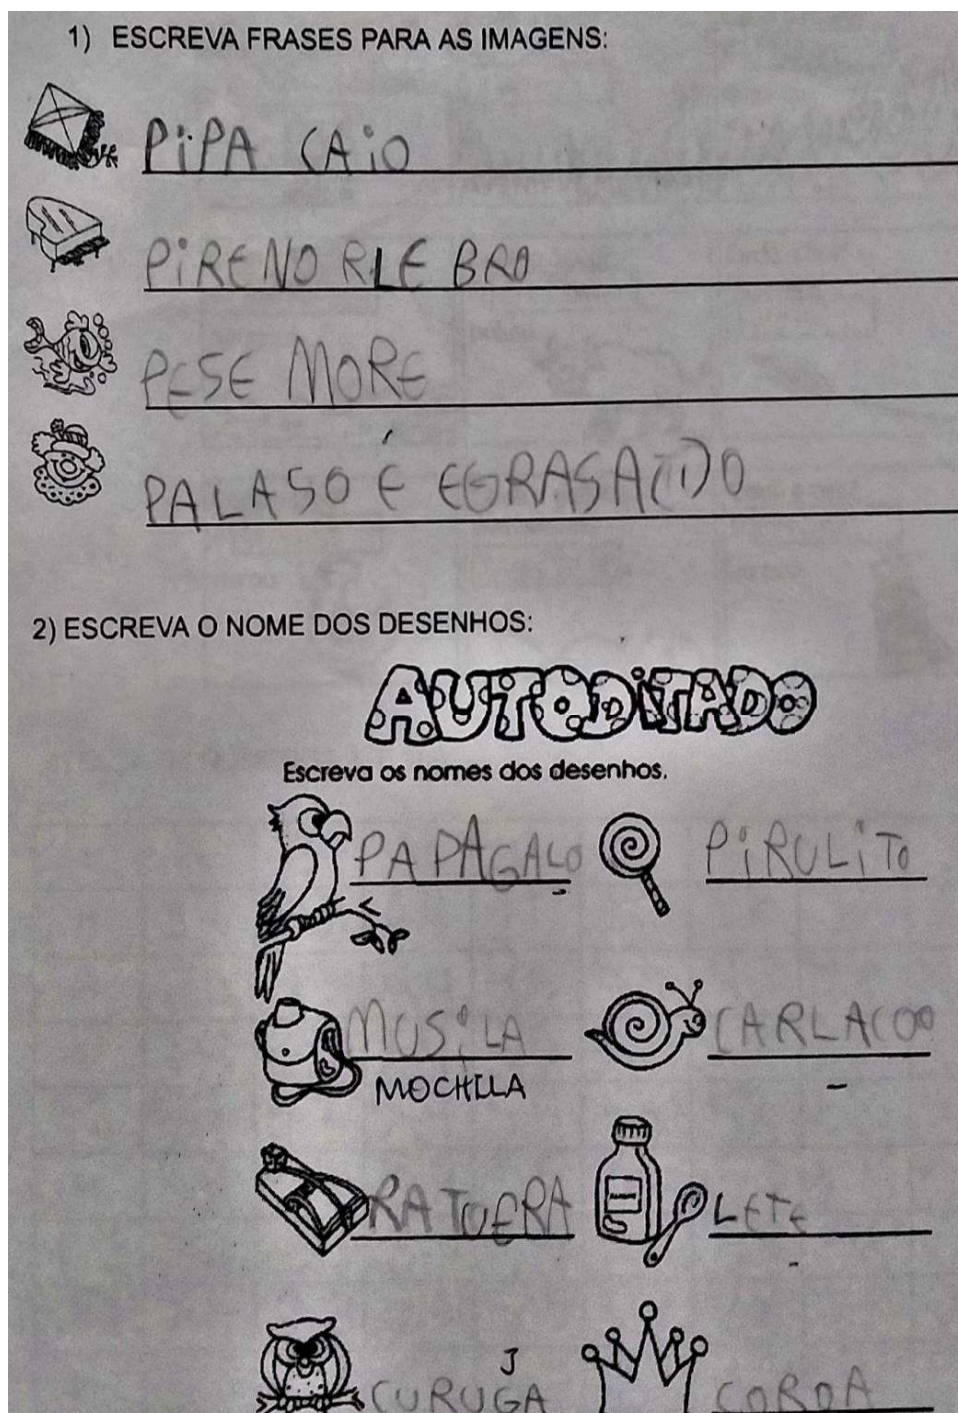 1) ESCREVA FRASES PARA AS IMAGENS:
PiPA CAiO
PiRENO RLE BRO
PESE MORE
PALASO É EGRASADO
2) ESCREVA O NOME DOS DESENHOS:
AUTODITADO
Escreva os nomes dos desenhos.
PAPAGALO PiRULiTO
MUSiLA CARLACOO
MOCHILA
RATUERA LETE
J
CURUGA COROA